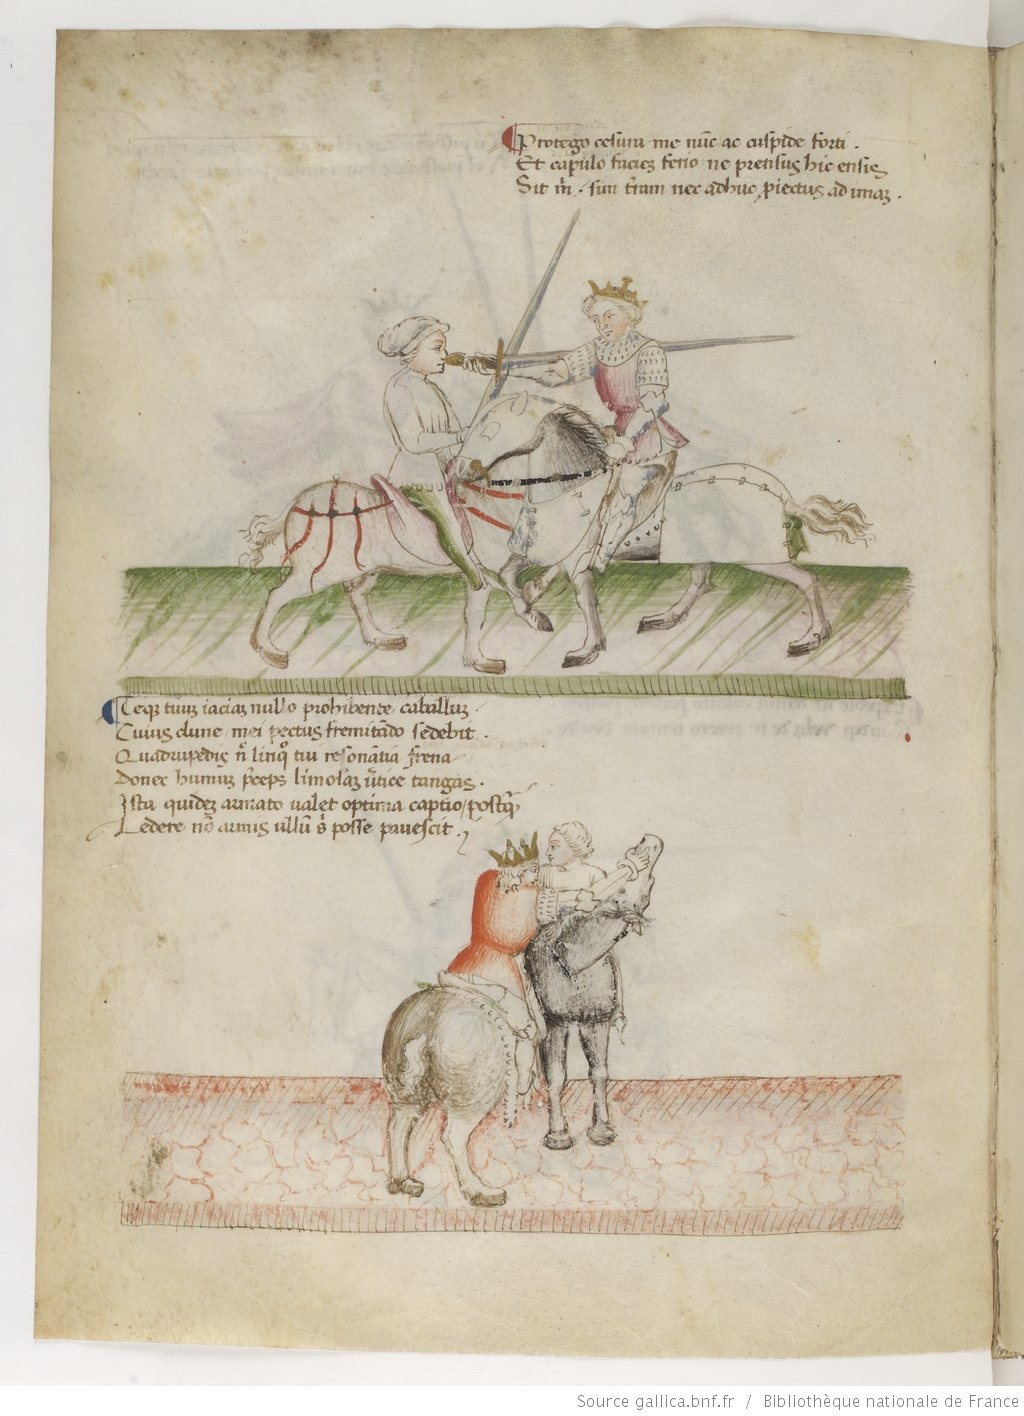 Protego cesuru me nũc ac cuspide forti .
Et capulo faciez ferio ne prensus hic ensis
Sit m̃ . sim t̃ram nec adhuc ꝓiectus ad imaz .
Teqꝫ tuuz iaciaz nullo prohibente caballuz .
Cuius clune mei pectus fremitãdo sedebit .
Quadrupedis ñ linqͦ tui resonãtia frena
Donec humuz p̃ceps limosaz ũtice tangas .
Ista quidez armato ualet optima captio / postq̃
Ledere nõ armis ullũ s̃ posse pauescit .
Source gallica.bnf.fr / Bibliothèque nationale de France